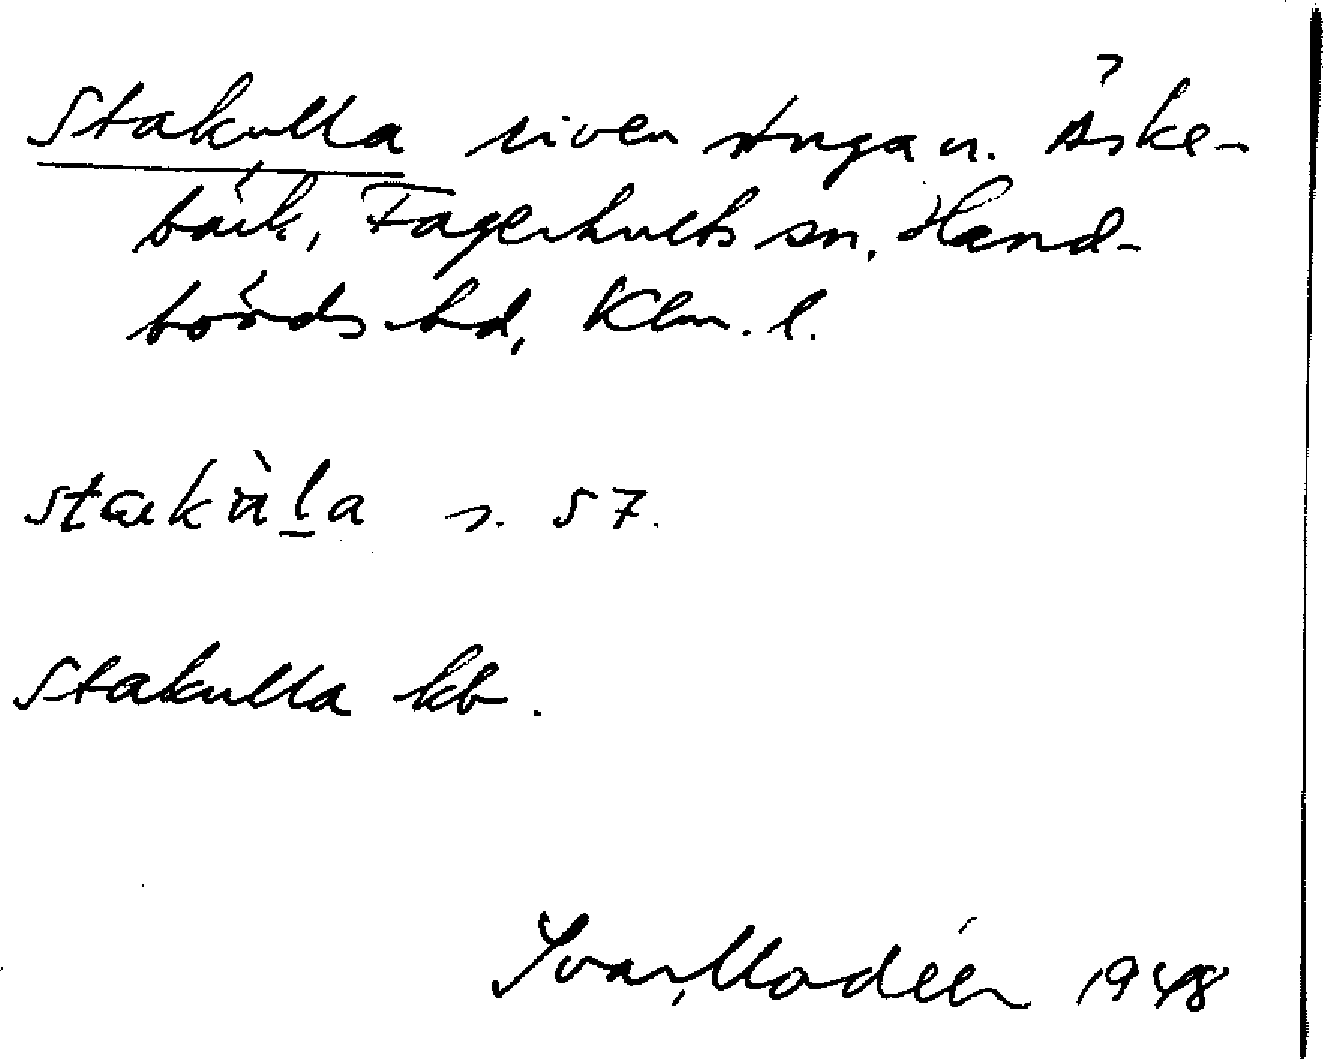 Stakulla riven stuga u. Äske-
bäck, Fagerhults sn, Hand-
börds hd, Klm. l.
stakùl̲a s. 57.
Stakulla kb.
Ivar Modéer 1948